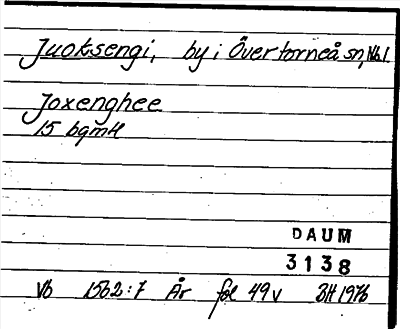 Juoksengi, by i Övertorneå sn, Nb.l
Joxenghee
15 bgmH
DAUM
3138
Vb 1562:7 År fol 49v BH 1976